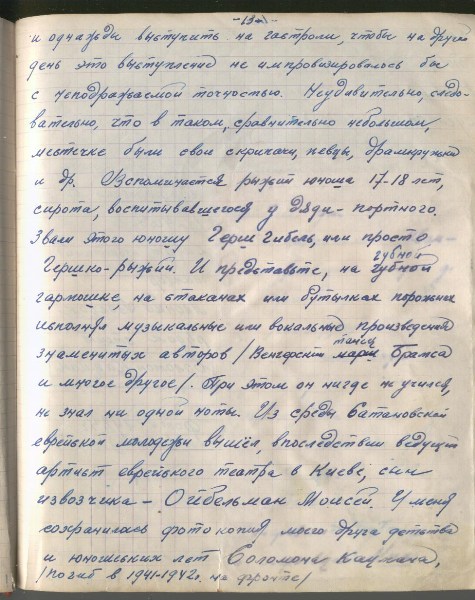 -13а-
и однажды выступить на гастроли, чтобы на другой
день это выступление не импровизировалось бы
с неподражаемой точностью. Неудивительно, следо-
вательно, что в таком, сравнительно небольшом,
местечке были свои скрипачи, певцы, драмкружки
и др. Вспоминается рыжий юноша 17-18 лет,
сирота, воспитывавшегося у дяди-портного.
Звали этого юношу Герш Гибель, или просто
Гершко-рыжий. И представьте, на губной
губной
гармошке, на стаканах или бутылках порожних
исполнял музыкальные или вокальные произведения
танец
знаменитых авторов /Венгерский марш Брамса
и многое другое/. При этом он нигде не учился,
не знал ни одной ноты. Из среды Сатановской
еврейской молодежи вышел, впоследствии ведущий
артист еврейского театра в Киеве, сын
извозчика - Ойбельман Моисей. У меня
сохранилась фотокопия моего друга детства
и юношеских лет Соломона
/погиб в 1941-1942г. на фронте/